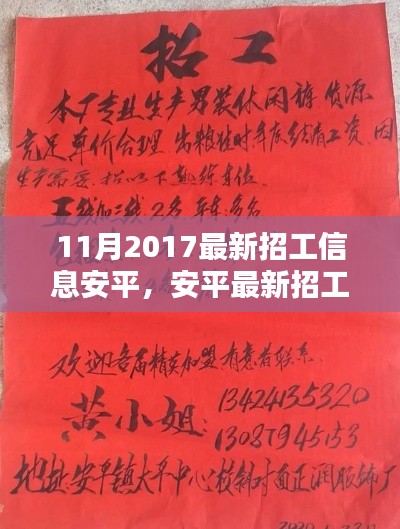 招工
本厂专业生产男装休闲裤 货源
充足 单价合理 出粮准时 年底结清工资 因
生产需要 招以下熟练车位
11月2017最新招工信
息安平，安平最新招工
欢迎各届精英加盟 有意者联系
黄小姐: 13424135320
13087945153
地址: 安平镇太平中心校斜对面正润服饰厂